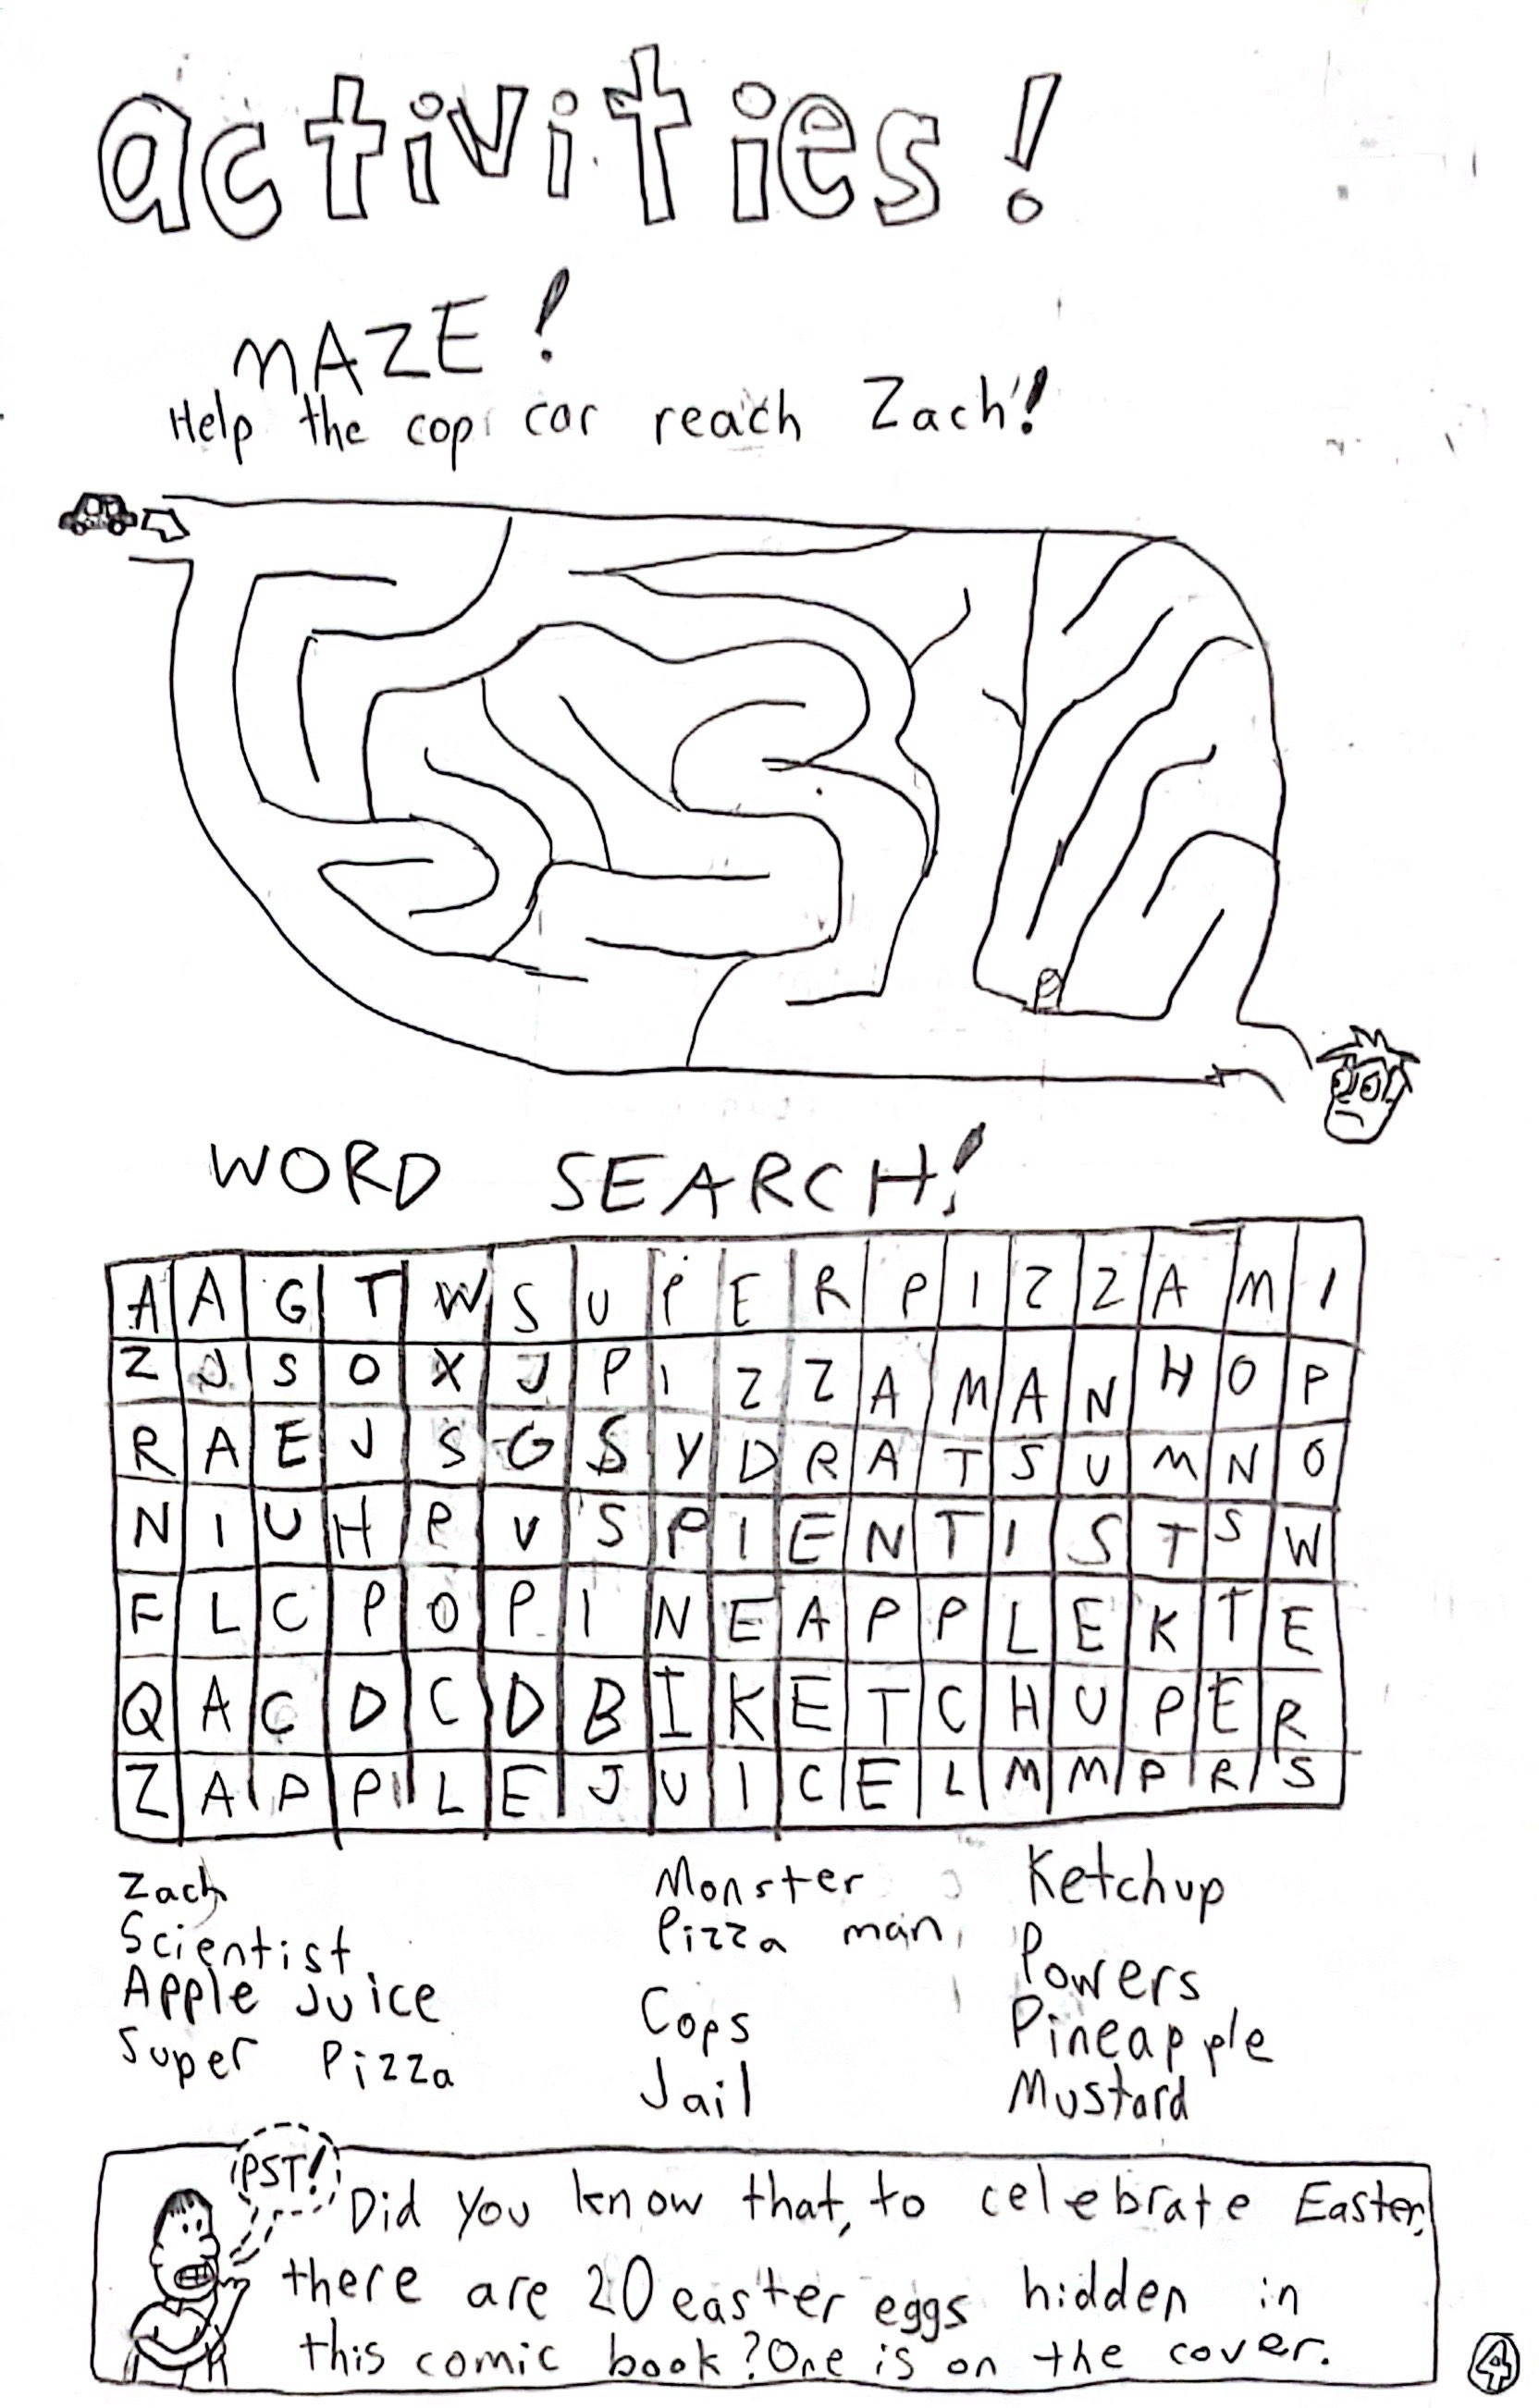 activities!
MAZE!
Help the cop car reach Zach!
WORD SEARCH!
A A G T W S U P E R P I Z Z A M I
Z J S O X J P I Z Z A M A N H O P
R A E J S G S Y D R A T S U M N O
N I U H P V S P I E N T I S T S W
F L C P O P I N E A P P L E K T E
Q A C D C D B I K E T C H U P E R
Z A P P L E J U I C E L M M P R S
Zach
Scientist
Apple Juice
Super Pizza
Monster
Pizza man
Cops
Jail
Ketchup
Powers
Pineapple
Mustard
PST!
Did you know that, to celebrate Easter,
there are 20 easter eggs hidden in
this comic book? One is on the cover.
4